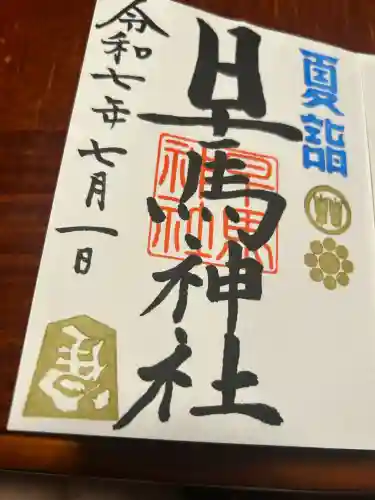 夏詣
早馬神社
早馬神社
令和七年七月一日